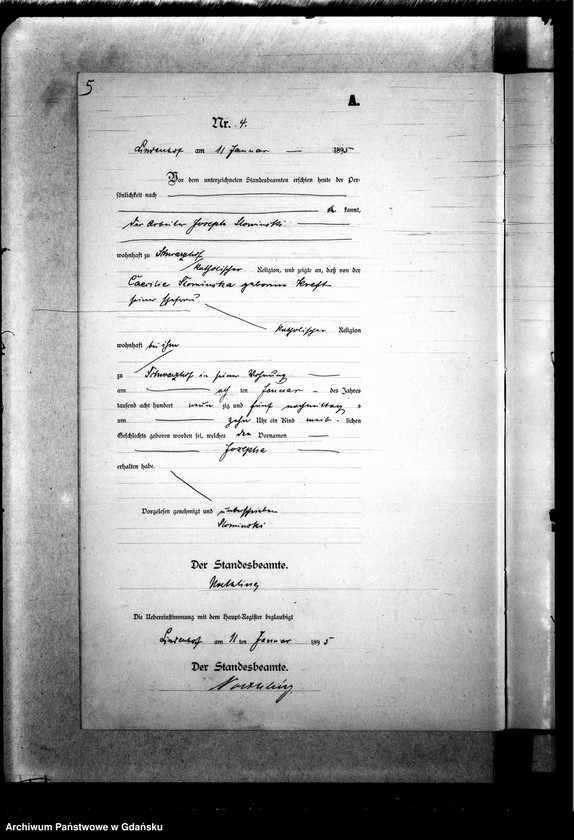 5
A.
Nr. 4.
Lindenhof am 11 Januar 1895
Vor dem unterzeichneten Standesbeamten erschien heute der Per-
sönlichkeit nach
kannt,
der Arbeiter Joseph Slominski
wohnhaft zu Schwarzhof
katholischer Religion, und zeigte an, daß von der
Caecilie Slominska geborene Kraft
seiner Ehefrau
katholischer Religion
wohnhaft bei ihm
zu Schwarzhof in seiner Wohnung
am ten Januar des Jahres
tausend acht hundert neun zig und fünf nachmittag s
um zehn Uhr ein Kind weib- lichen
Geschlechts geboren worden sei, welches den Vornamen
Josepha
erhalten habe.
Vorgelesen genehmigt und unterschrieben
Slominski
Der Standesbeamte.
Die Uebereinstimmung mit dem Haupt-Register beglaubigt
Lindenhof am 11 ten Januar 1895
Der Standesbeamte.
Archiwum Państwowe w Gdańsku